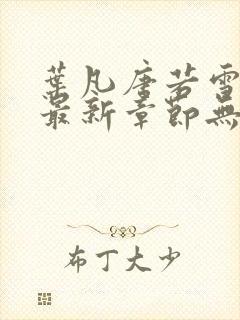 葉凡唐若雪
最新章節無
布丁大少